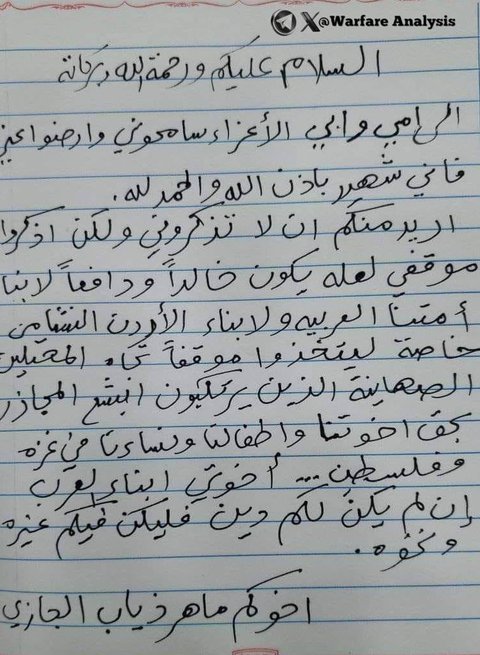 @Warfare Analysis
السلام عليكم ورحمة الله وبركاتة
الى امي وابي الأعزاء سامحوني وارضوا عني
فاني شهيد باذن الله والحمد لله.
اريد منكم ان لا تذكروني ولكن اذكروا
موقفي لعله يكون خالداً ودافعاً لابنا
أمتنا العربيه ولابناء الأردن النشامى
خاصة ليتخذوا موقفاً تجاه المحتلين
الصهاينة الذين يرتكبون ابشع المجازر
بحق اخوتنا واطفالنا ونساءنا في غزه
وفلسطين... أخوتي ابناء العرب
إن لم يكن لكم دين فليكن فيكم غيره
ونخوه.
اخوكم ماهر ذياب الجازي